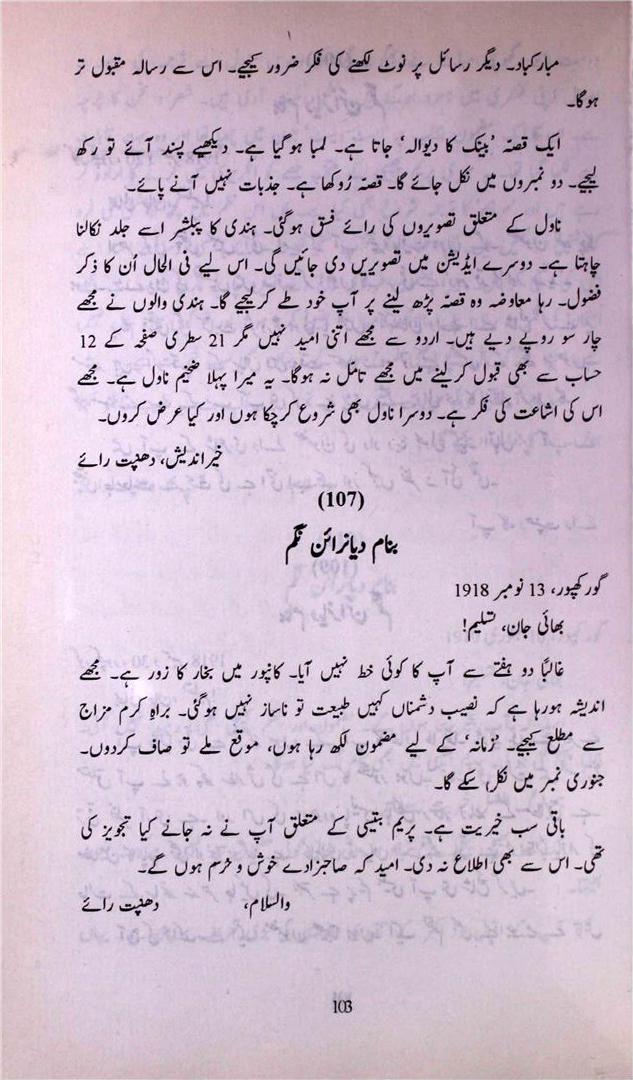 مبارکباد۔ دیگر رسائل پر نوٹ لکھنے کی فکر ضرور کیجیے۔ اس سے رسالہ مقبول تر
ہوگا۔
ایک قصّہ ’بینک کا دیوالہ‘ جاتا ہے۔ لمبا ہوگیا ہے۔ دیکھیے پسند آئے تو رکھ
لیجیے۔ دو نمبروں میں نکل جائے گا۔ قصّہ رُوکھا ہے۔ جذبات نہیں آنے پائے۔
ناول کے متعلق تصویروں کی رائے فسق ہوگئی۔ ہندی کا پبلشر اسے جلد نکالنا
چاہتا ہے۔ دوسرے ایڈیشن میں تصویریں دی جائیں گی۔ اس لیے فی الحال اُن کا ذکر
فضول۔ رہا معاوضہ وہ قصّہ پڑھ لینے پر آپ خود طے کرلیجیے گا۔ ہندی والوں نے مجھے
چار سو روپے دیے ہیں۔ اردو سے مجھے اتنی امید نہیں مگر 21 سطری صفحہ کے 12
حساب سے بھی قبول کرلینے میں مجھے تامل نہ ہوگا۔ یہ میرا پہلا ضخیم ناول ہے۔ مجھے
اس کی اشاعت کی فکر ہے۔ دوسرا ناول بھی شروع کرچکا ہوں اور کیا عرض کروں۔
خیراندیش، دھنپت رائے
(107)
بنام دیانرائن نگم
گورکھپور، 13 نومبر 1918
بھائی جان، تسلیم!
غالبًا دو ہفتے سے آپ کا کوئی خط نہیں آیا۔ کانپور میں بخار کا زور ہے۔ مجھے
اندیشہ ہورہا ہے کہ نصیب دشمناں کہیں طبیعت تو ناساز نہیں ہوگئی۔ براہِ کرم مزاج
سے مطلع کیجیے۔ ’زمانہ‘ کے لیے مضمون لکھ رہا ہوں، موقع ملے تو صاف کردوں۔
جنوری نمبر میں نکل سکے گا۔
باقی سب خیریت ہے۔ پریم بتیسی کے متعلق آپ نے نہ جانے کیا تجویز کی
تھی۔ اس سے بھی اطلاع نہ دی۔ امید کہ صاحبزادے خوش و خرّم ہوں گے۔
والسلام، دھنپت رائے
103